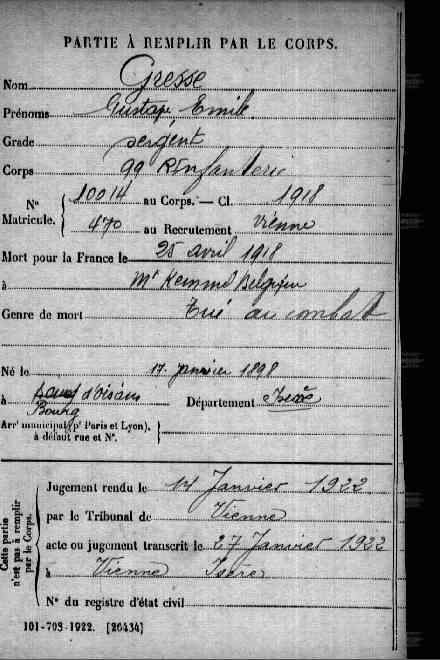 PARTIE À REMPLIR PAR LE CORPS.
Nom Gresse
Prénoms Gustave Emile
Grade sergent
Corps 99 R Infanterie
No Matricule. 10014 au Corps. — Cl. 1918
470 au Recrutement Vienne
Mort pour la France le 25 avril 1918
à Mt Kemmel Belgique
Genre de mort Tué au combat
Né le 17 janvier 1898
à d'Oisans Département Isère
Bourg
Arrt municipal (pr Paris et Lyon),
à défaut rue et No.
Cette partie
n'est pas à remplir
par le Corps.
Jugement rendu le 14 Janvier 1922
par le Tribunal de Vienne
acte ou jugement transcrit le 27 Janvier 1922
à Vienne Isère
No du registre d'état civil
101-708-1922. [26434]